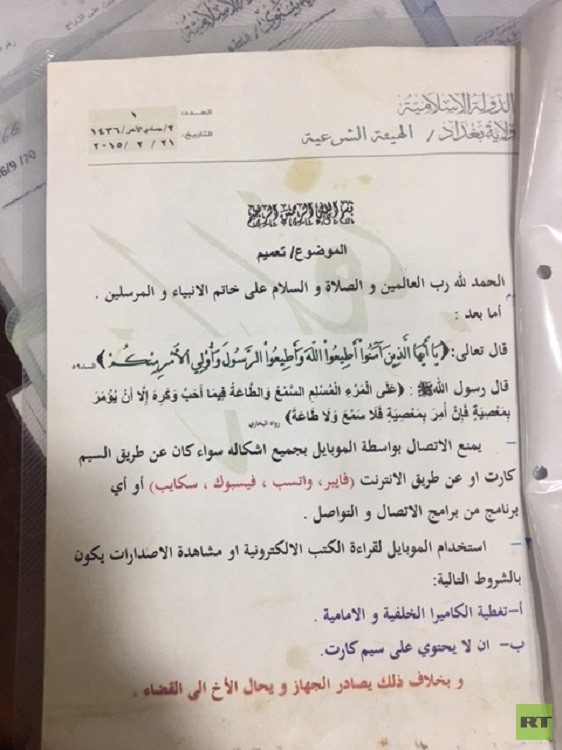 الدولة الإسلامية
ولاية بغداد / الهيئة الشرعية
العدد: ١
التاريخ: ٢/جمادى الآخر/١٤٣٦
٢٠١٥/ ٢ / ٢١
بسم الله الرحمن الرحيم
الموضوع/ تعميم
الحمد لله رب العالمين و الصلاة و السلام على خاتم الانبياء و المرسلين .
أما بعد :
قال تعالى: ﴿يَا أَيُّهَا الَّذِينَ آمَنُوا أَطِيعُوا اللَّهَ وَأَطِيعُوا الرَّسُولَ وَأُولِي الْأَمْرِ مِنكُمْ﴾
قال رسول الله ﷺ : (عَلَى المَرْءِ المُسْلِمِ السَّمْعُ وَالطَّاعَةُ فِيمَا أَحَبَّ وَكَرِهَ إِلَّا أَنْ يُؤْمَرَ
بِمَعْصِيَةٍ فَإِنْ أُمِرَ بِمَعْصِيَةٍ فَلَا سَمْعَ وَلَا طَاعَةَ) رواه البخاري
– يمنع الاتصال بواسطة الموبايل بجميع اشكاله سواء كان عن طريق السيم
كارت او عن طريق الانترنت (فايبر، واتسب ، فيسبوك ، سكايب) أو أي
برنامج من برامج الاتصال و التواصل .
– استخدام الموبايل لقراءة الكتب الالكترونية او مشاهدة الاصدارات يكون
بالشروط التالية:
أ–تغطية الكاميرا الخلفية و الامامية .
ب– ان لا يحتوي على سيم كارت.
و بخلاف ذلك يصادر الجهاز و يحال الأخ الى القضاء .
RT